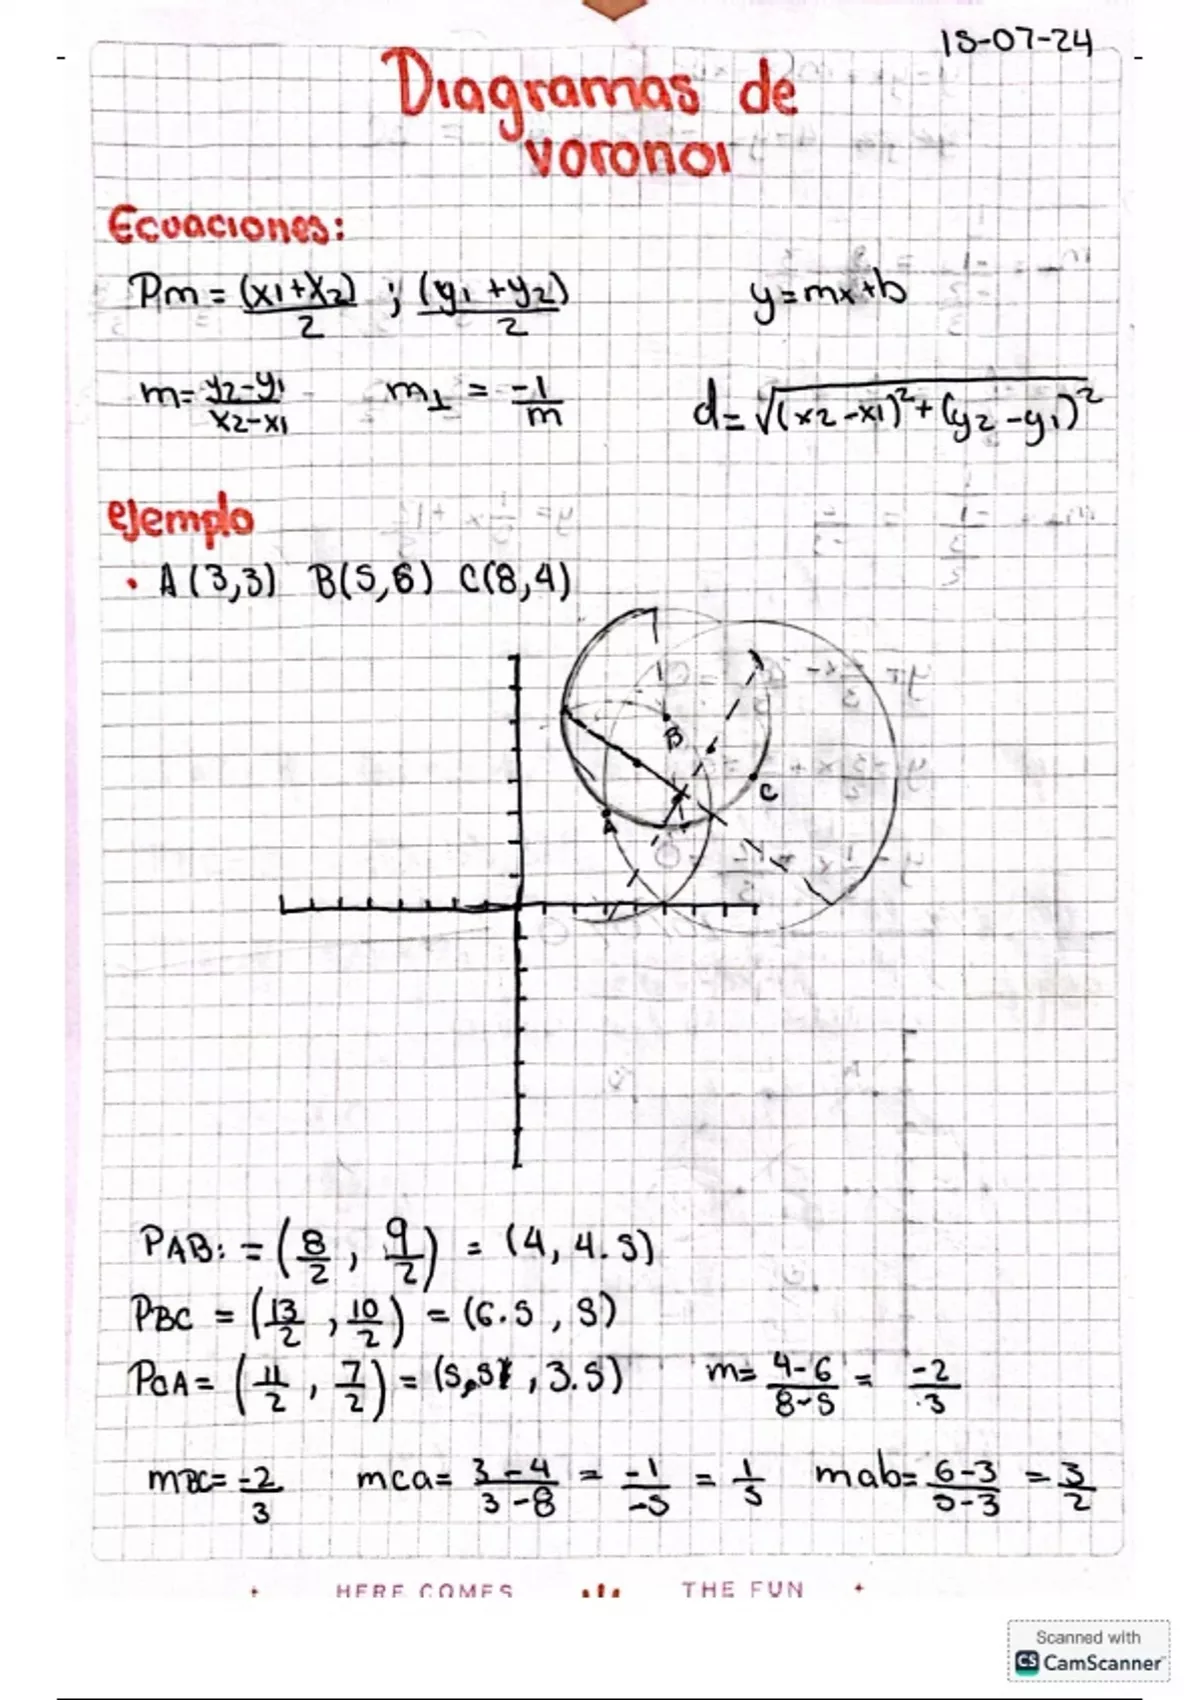 15-07-24
Diagramas de
voronoi
Ecuaciones:
Pm = (x1+x2)/2 ; (y1+y2)/2    y=mx+b
m= y2-y1/x2-x1    m⊥ = -1/m    d= √(x2-x1)²+(y2-y1)²
ejemplo
• A(3,3) B(5,6) C(8,4)
B
C
A
PAB: = (8/2, 9/2) = (4, 4.5)
PBC = (13/2, 10/2) = (6.5, 5)
PCA = (11/2, 7/2) = (5,5, 3.5)    m= 4-6/8-5 = -2/3
mBC= -2/3    mca= 3-4/3-8 = -1/-5 = 1/5    mab= 6-3/5-3 = 3/2
HERE COMES THE FUN
Scanned with
CS CamScanner